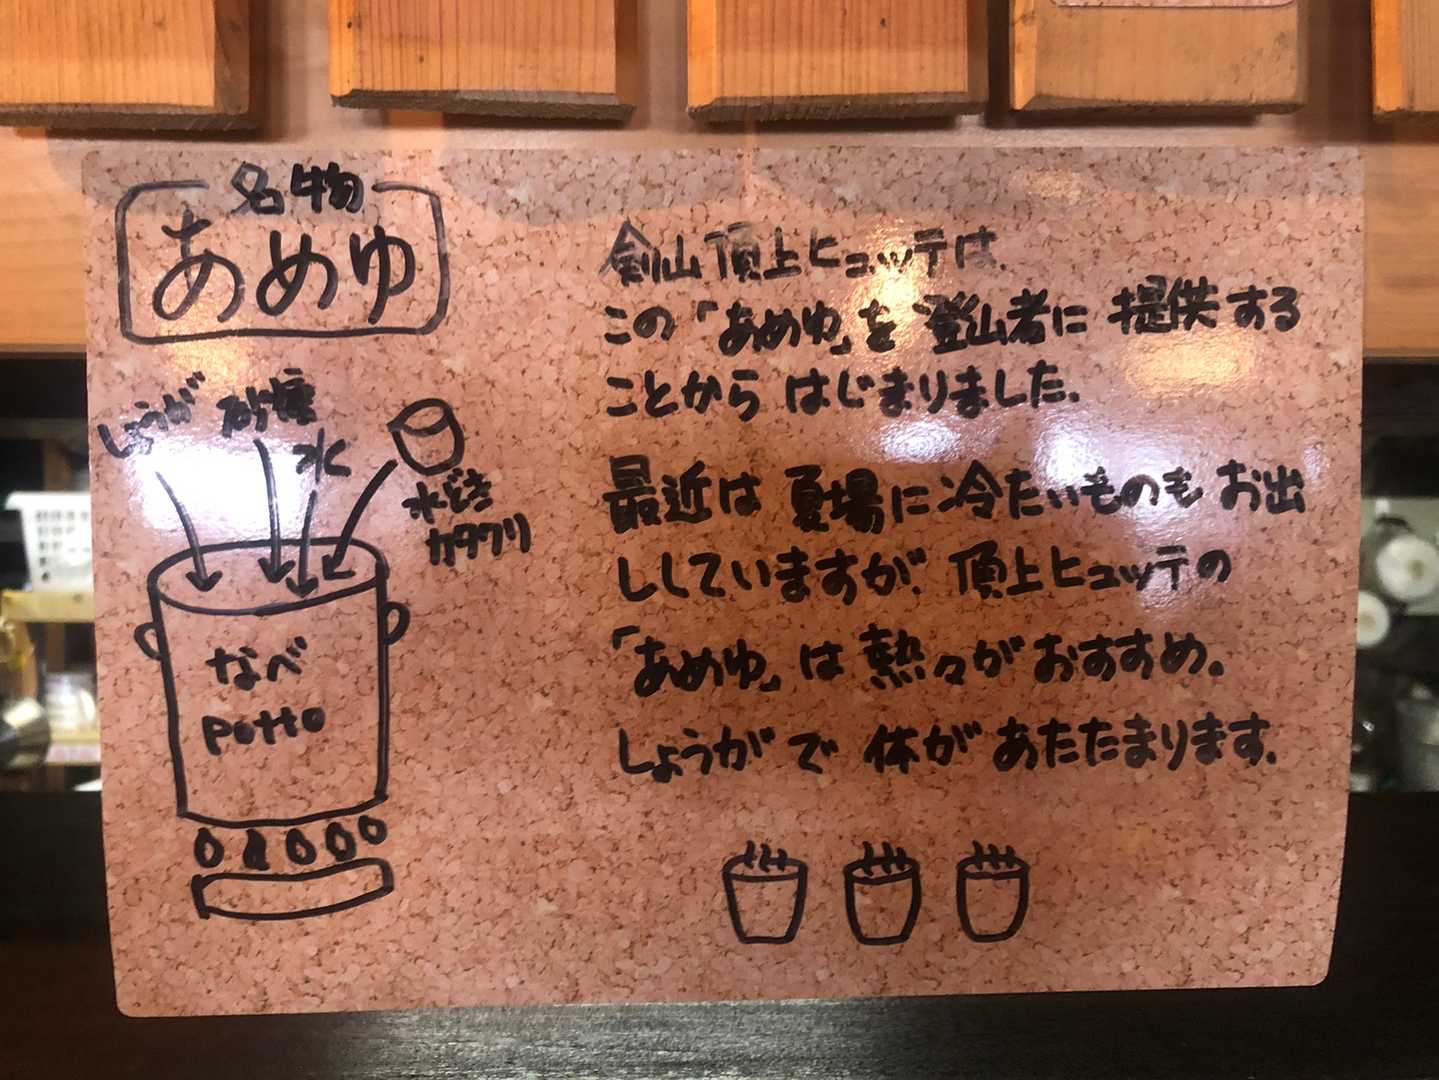 名物
あめゆ
しょうが 砂糖
水
水どき
カタクリ
なべ
Potto
剣山頂上ヒュッテは、
この「あめゆ」を登山者に提供する
ことからはじまりました。
最近は夏場に冷たいものもお出
ししていますが、頂上ヒュッテの
「あめゆ」は熱々がおすすめ。
しょうがで体があたたまります。